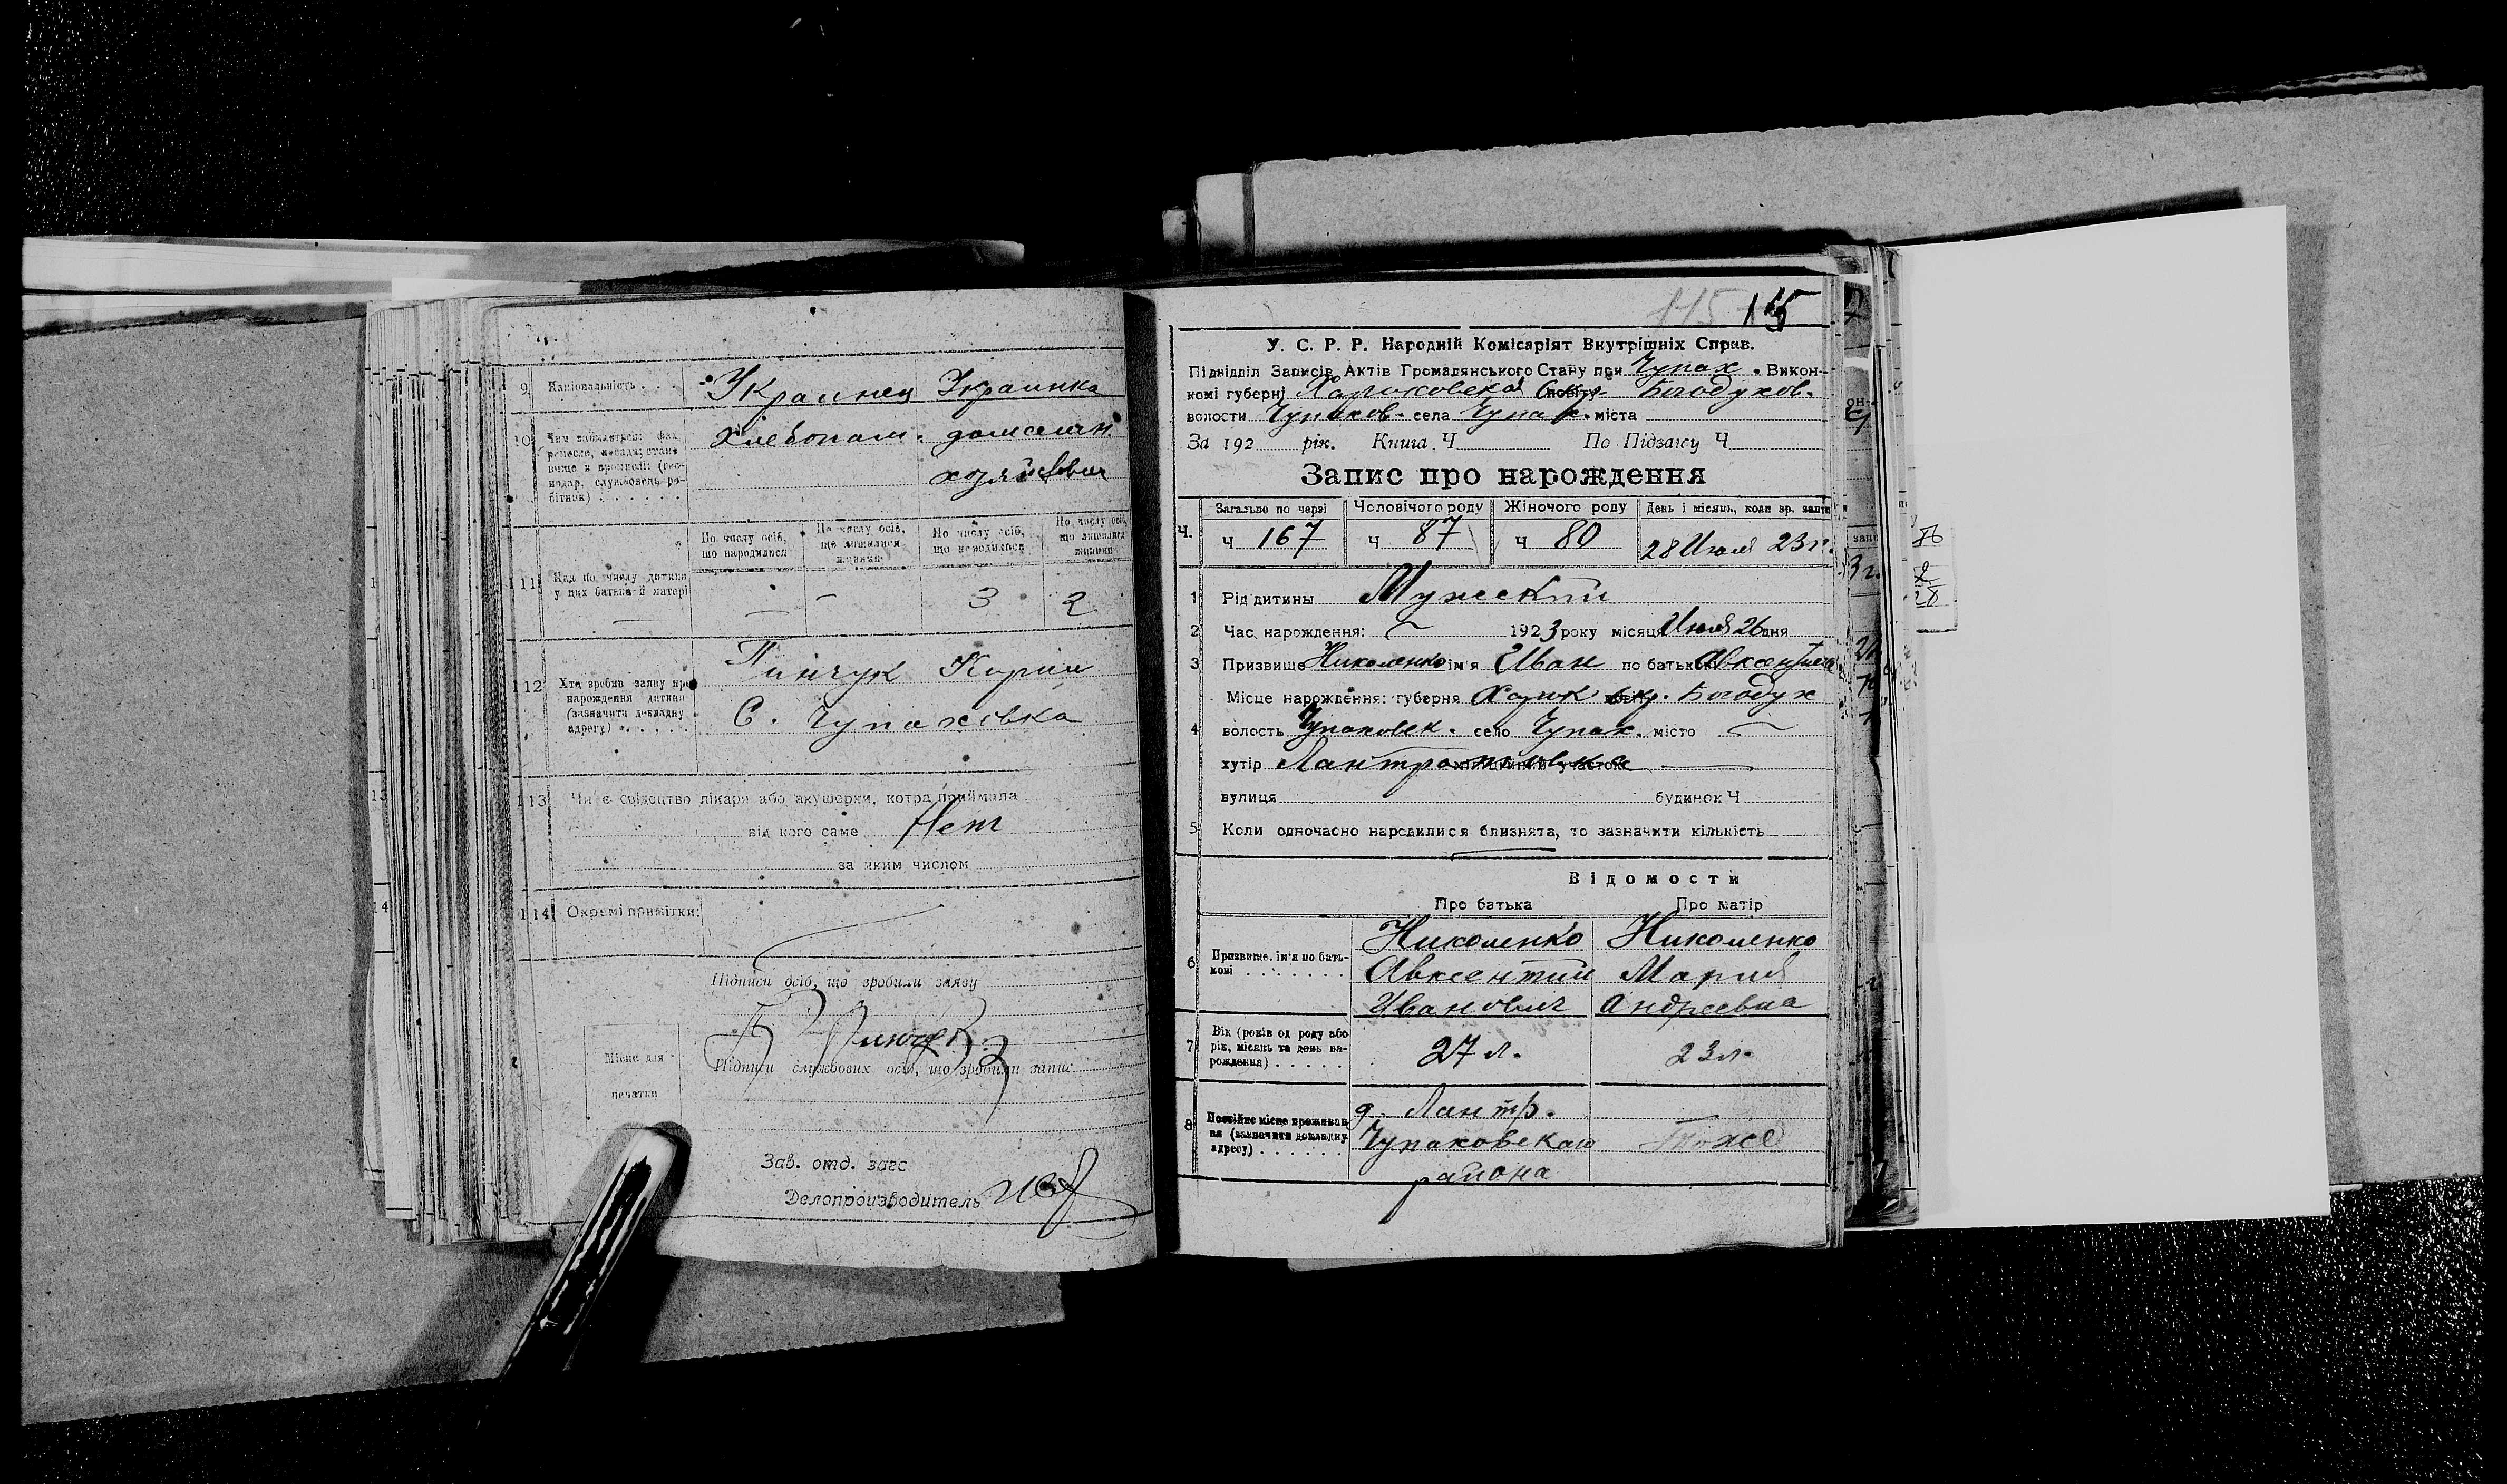 9 Національність . . . Украинец Украинка
10 Чим займается: фах, ремесло, посада; становище в промислі (господар, службовець, робітник) . . . . . . хлебопаш. домашн.
хозяйствие
По числу осіб, що народилися По числу осіб, що лишилися живими По числу осіб, що народилися По числу осіб, що лишилися живими
11 Яка по числу дитина у цих батька й матері — — 3 2
12 Хто зробив заяву про нарождення дитини (зазначити докладну адресу) . . . . . Пинчук
С. Чупахівка
13 Чи є свідоцтво лікаря або акушерки, котра приймала
від кого саме Нет
за яким числом
14 Окремі примітки:
Підписи осіб, що зробили заяву
Підписи службових осіб, що зробили запис
Місце для печатки
Зав. отд. загс
Делопроизводитель
115 115
У. С. Р. Р. Народній Комісаріят Внутрішніх Справ.
Підвідділ Записів Актів Громадянського Стану при Чупах. Викон-
комі губерні Харьковской повіту Окр. Богодухов.
волости Чупахов. села Чупах. міста
За 192 рік. Книга Ч По Підзагсу Ч
Запис про нарождення
Ч. Загально по черзі Чоловічого роду Жіночого роду День і місяць, коли зр. запис
Ч 167 Ч 87 Ч 80 28 Июля 23 г.
1 Рід дитины Мужский
2 Час нарождення: — 1923 року місяця Июля 26 дня
3 Призвище Николенко ім'я Иван по батькові Авксентиев
Місце нарождення: губерня Харьк окр. Богодух
4 волость Чупаховск. село Чупах. місто —
хутір Лантратовка —
вулиця будинок Ч
5 Коли одночасно народилися близнята, то зазначити кількість
Відомости
Про батька Про матір
6 Призвище, ім'я по батькові . . . . . . . Николенко Николенко
Авксентий Мария
Иванович Андреевна
7 Вік (років од роду або рік, місяць та день нарождення) . . . . . 27 л. 23 л.
8 Постійне місце проживання (зазначити докладну адресу) . . . . . . д. Лантр.
Чупаховскаго Тоже
района